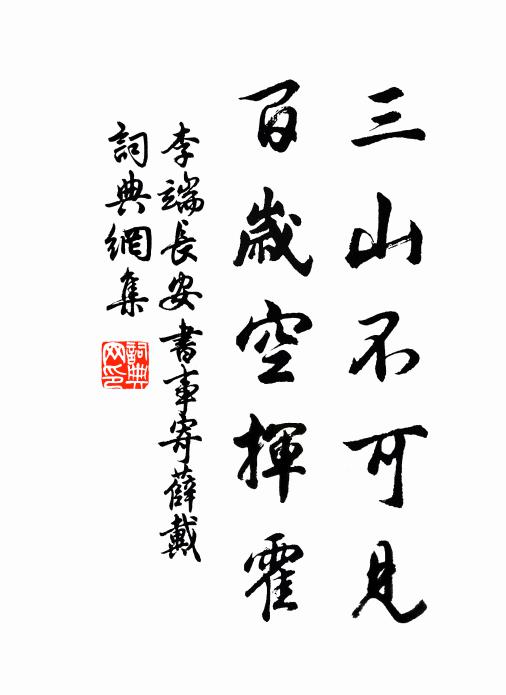 三山不可見
百歲空揮霍
李端長安書事寄薛戴
詞典網集
詞典網印